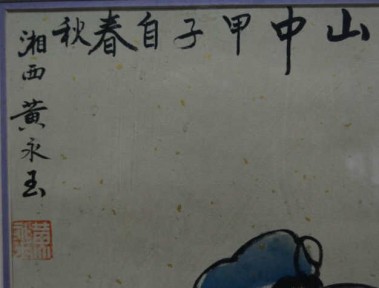 山中甲子自春秋
湘西黄永玉